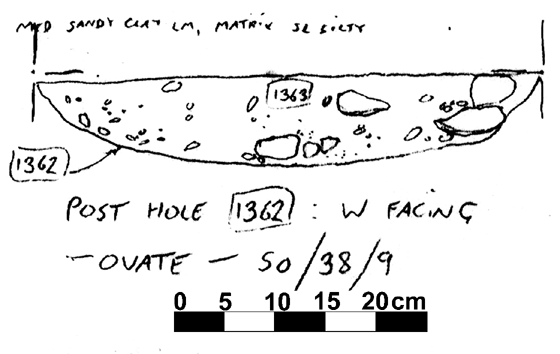 MED SANDY CLAY LM, MATRIX SL SILTY
1363
1362
POST HOLE 1362 : W FACING
- OVATE - 50/38/9
0 5 10 15 20cm